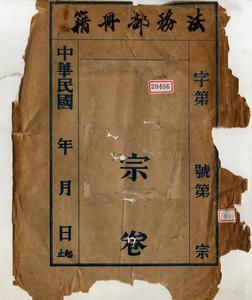 法務部冊籍
字第　號第　宗
20406
宗卷
中華民國　年　月　日起